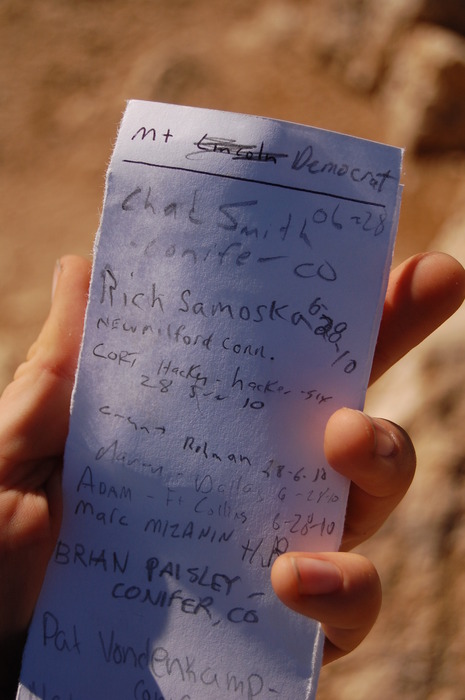 Mt Lincoln Democrat
Chad Smith 06-28
conifer CO
Rich Samoska 6-28-10
New Milford Conn.
CORT Hacker - hacker-six
28 10
Rolman 28-6-10
Dallas 6-28-10
ADAM - Ft Collins 6-28-10
Marc MIZANIN
BRIAN PAISLEY -
CONIFER, CO
Pat Vondenkamp-